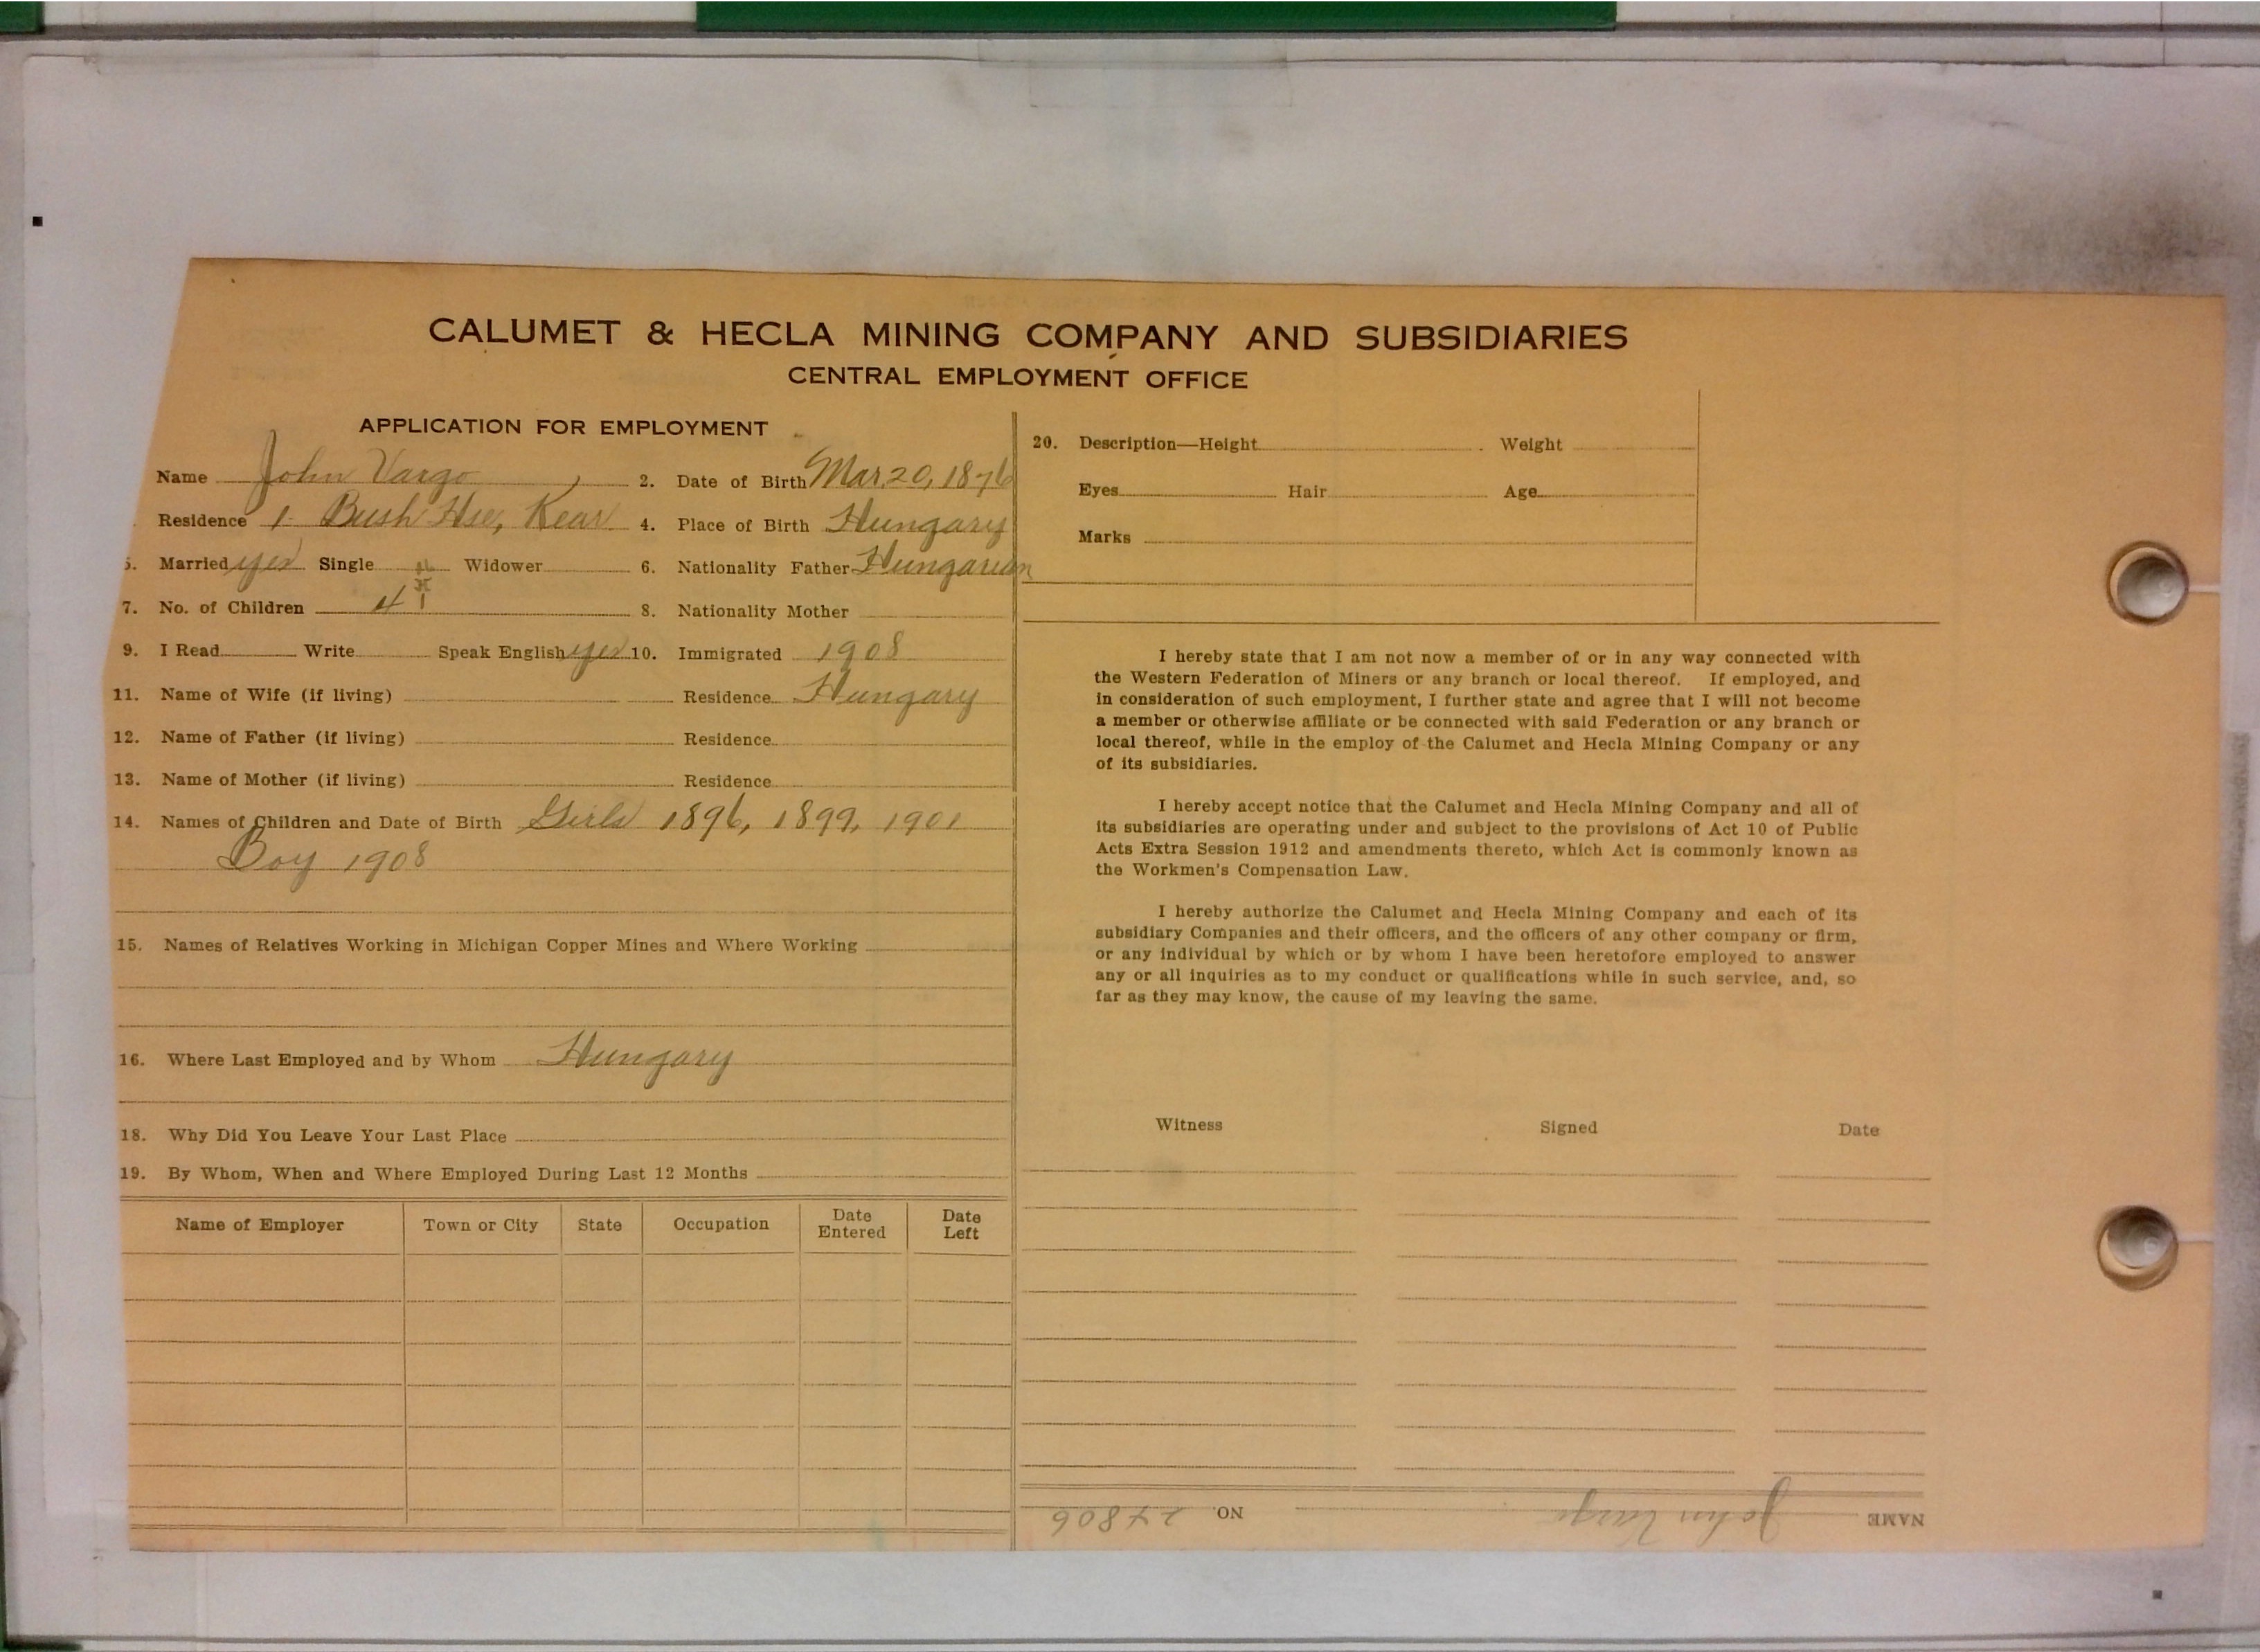 CALUMET & HECLA MINING COMPANY AND SUBSIDIARIES
CENTRAL EMPLOYMENT OFFICE
APPLICATION FOR EMPLOYMENT
Name John Vargo 2. Date of Birth Mar. 20, 1876
Residence 1 Bush Hse, Kear 4. Place of Birth Hungary
5. Married yes Single Widower 6. Nationality Father Hungarian
7. No. of Children 4 8. Nationality Mother
9. I Read Write Speak English yes 10. Immigrated 1908
11. Name of Wife (if living) Residence Hungary
12. Name of Father (if living) Residence
13. Name of Mother (if living) Residence
14. Names of Children and Date of Birth Girls 1896, 1899, 1901
Boy 1908
15. Names of Relatives Working in Michigan Copper Mines and Where Working
16. Where Last Employed and by Whom Hungary
18. Why Did You Leave Your Last Place
19. By Whom, When and Where Employed During Last 12 Months
Name of Employer Town or City State Occupation Date Entered Date Left
20. Description—Height Weight
Eyes Hair Age
Marks
I hereby state that I am not now a member of or in any way connected with
the Western Federation of Miners or any branch or local thereof. If employed, and
in consideration of such employment, I further state and agree that I will not become
a member or otherwise affiliate or be connected with said Federation or any branch or
local thereof, while in the employ of the Calumet and Hecla Mining Company or any
of its subsidiaries.
I hereby accept notice that the Calumet and Hecla Mining Company and all of
its subsidiaries are operating under and subject to the provisions of Act 10 of Public
Acts Extra Session 1912 and amendments thereto, which Act is commonly known as
the Workmen's Compensation Law.
I hereby authorize the Calumet and Hecla Mining Company and each of its
subsidiary Companies and their officers, and the officers of any other company or firm,
or any individual by which or by whom I have been heretofore employed to answer
any or all inquiries as to my conduct or qualifications while in such service, and, so
far as they may know, the cause of my leaving the same.
Witness Signed Date
NAME John Vargo NO. 27806